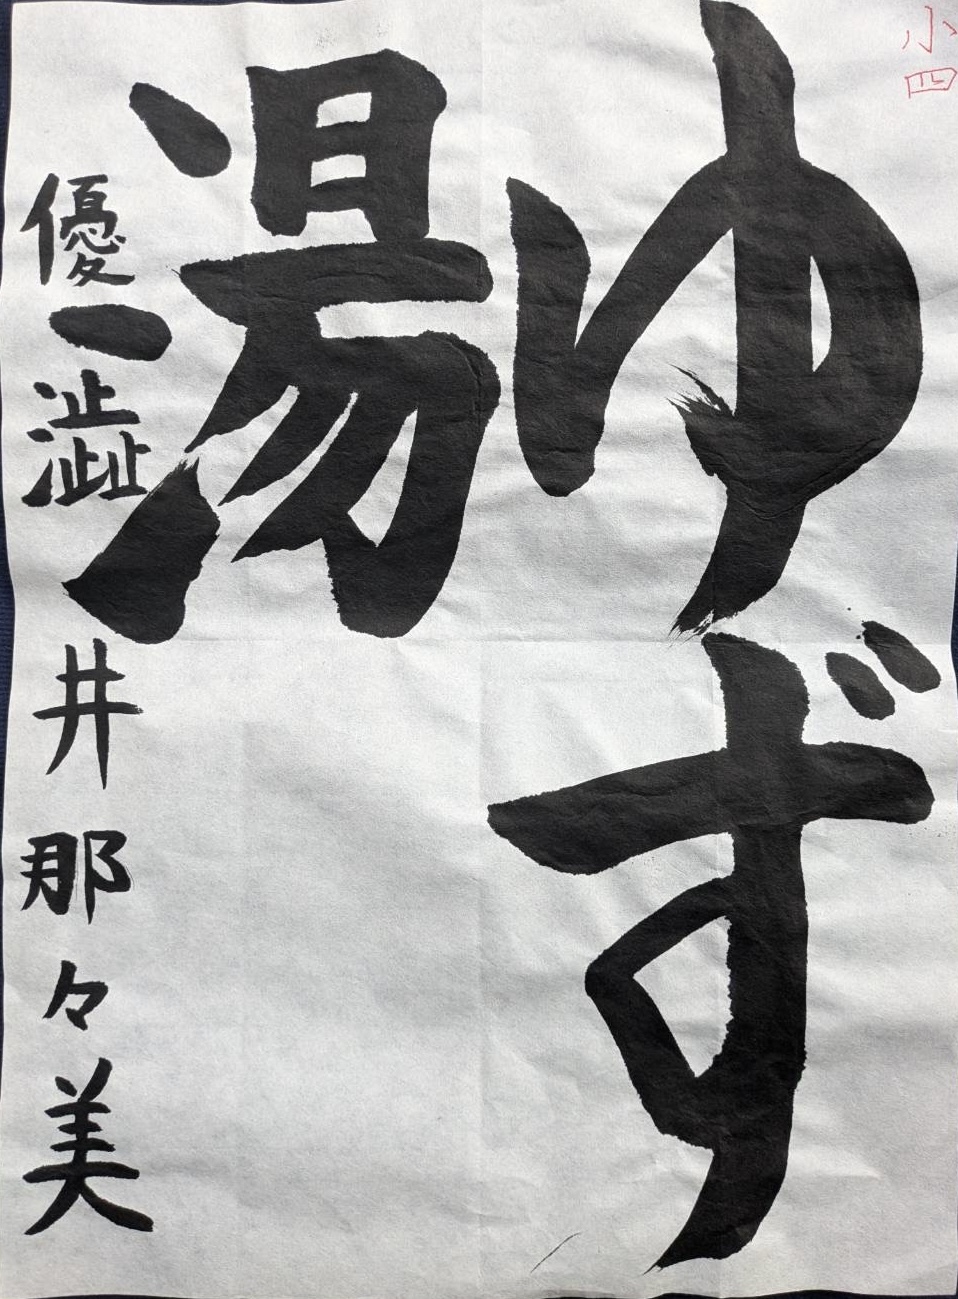 小四
ゆず
湯
優一澁井那々美